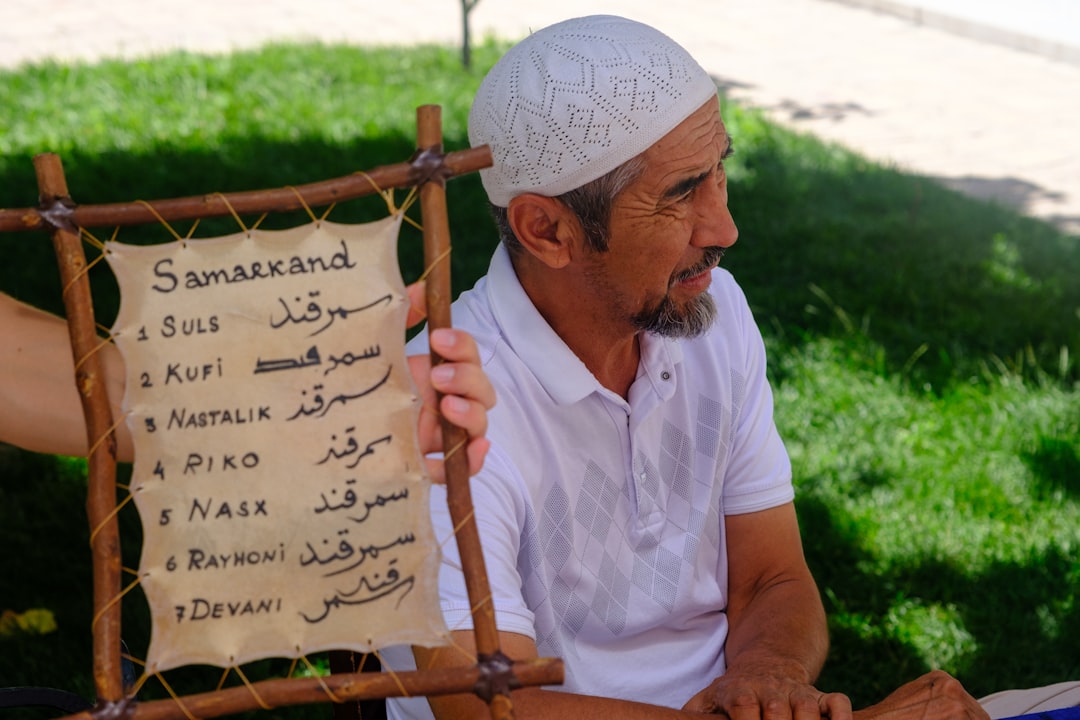 Samarkand
1 SULS سمرقند
2 KUFI سمرقند
3 NASTALIK سمرقند
4 RIKO سمرقند
5 NASX سمرقند
6 RAYHONI سمرقند
7 DEVANI سمرقند